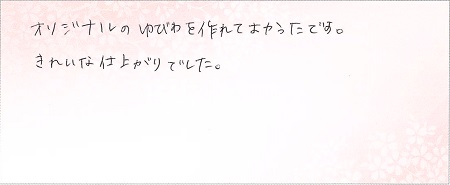 オリジナルのゆびわを作れてよかったです。
きれいな仕上がりでした。